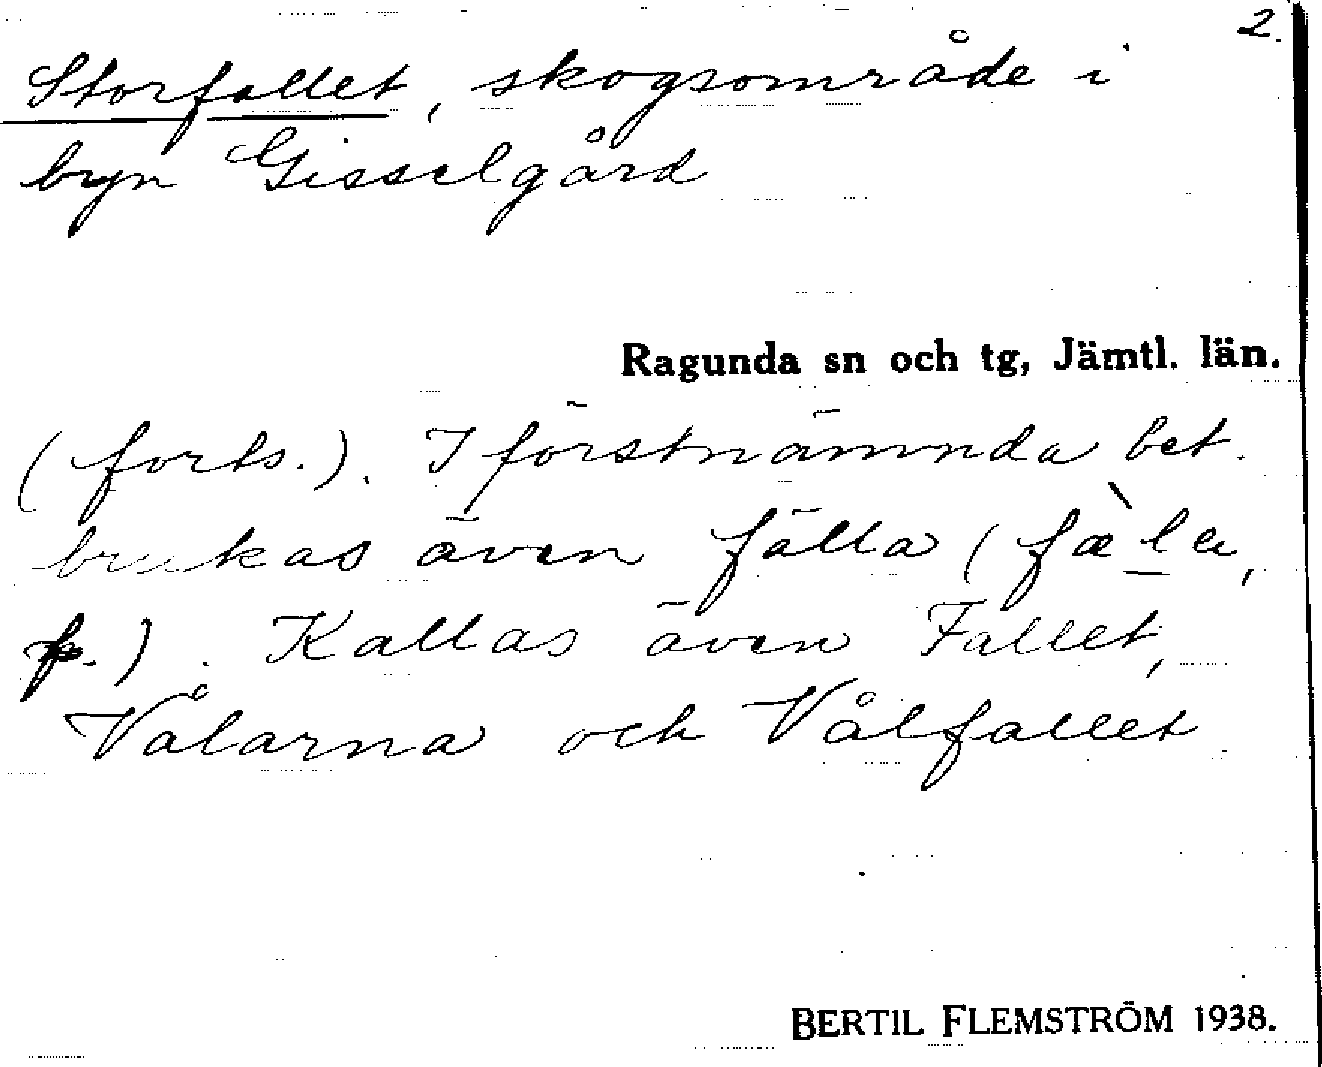 2.
Storfallet, skogsområde i
byn Gisselgård
Ragunda sn och tg, Jämtl. län.
(forts.). I förstnämnda bet.
brukas även fälla (fæ̀la,
f.). Kallas även Fallet,
Vålarna och Vålfallet
BERTIL FLEMSTRÖM 1938.